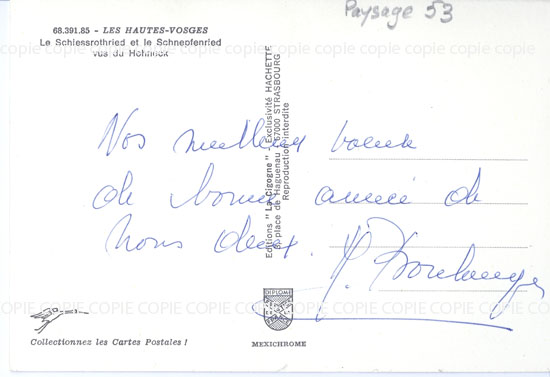 Paysage 53
68.391.85 - LES HAUTES-VOSGES
Le Schiessrothried et le Schnepfenried
vus du Hohneck
COPIE COPIE COPIE COPIE COPIE COPIE COPIE COPIE COPIE COPIE
Nos meilleurs voeux
de bonne année de
nous deux.
Boulanger
Editions "La Cigogne" - Exclusivité HACHETTE
place de Haguenau - 67000 STRASBOURG
Reproduction interdite
DIPLOME
COPIE COPIE COPIE COPIE COPIE COPIE COPIE COPIE COPIE COPIE
Collectionnez les Cartes Postales !
MEXICHROME